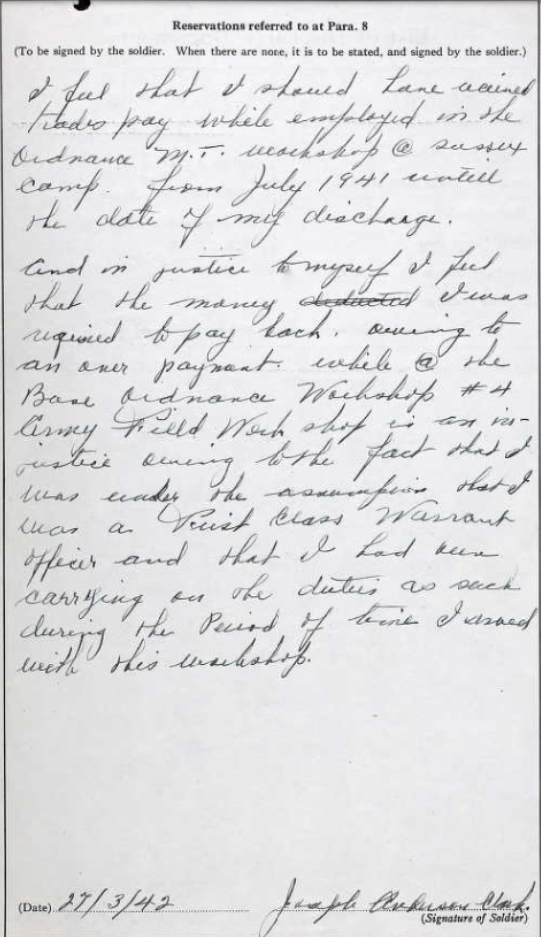 Reservations referred to at Para. 8
(To be signed by the soldier. When there are none, it is to be stated, and signed by the soldier.)
I feel that I should have
trades pay while employed in the
Ordnance M.T. workshop @ Sussex
Camp. from July 1941 untill
the date of my discharge.
And in justice to myself I feel
that the money deducted I was
required to pay back. owing to
an over paymant. while @ the
Base Ordnance Workshop #4
Army Field Work shop is an in-
justice owing to the fact that I
was under the assumption that I
was a First Class Warrant
officer and that I had been
carrying on the duties as such
during the Period of time I served
with this workshop.
(Date) 27/3/42 Joseph Anderson Clark.
(Signature of Soldier)